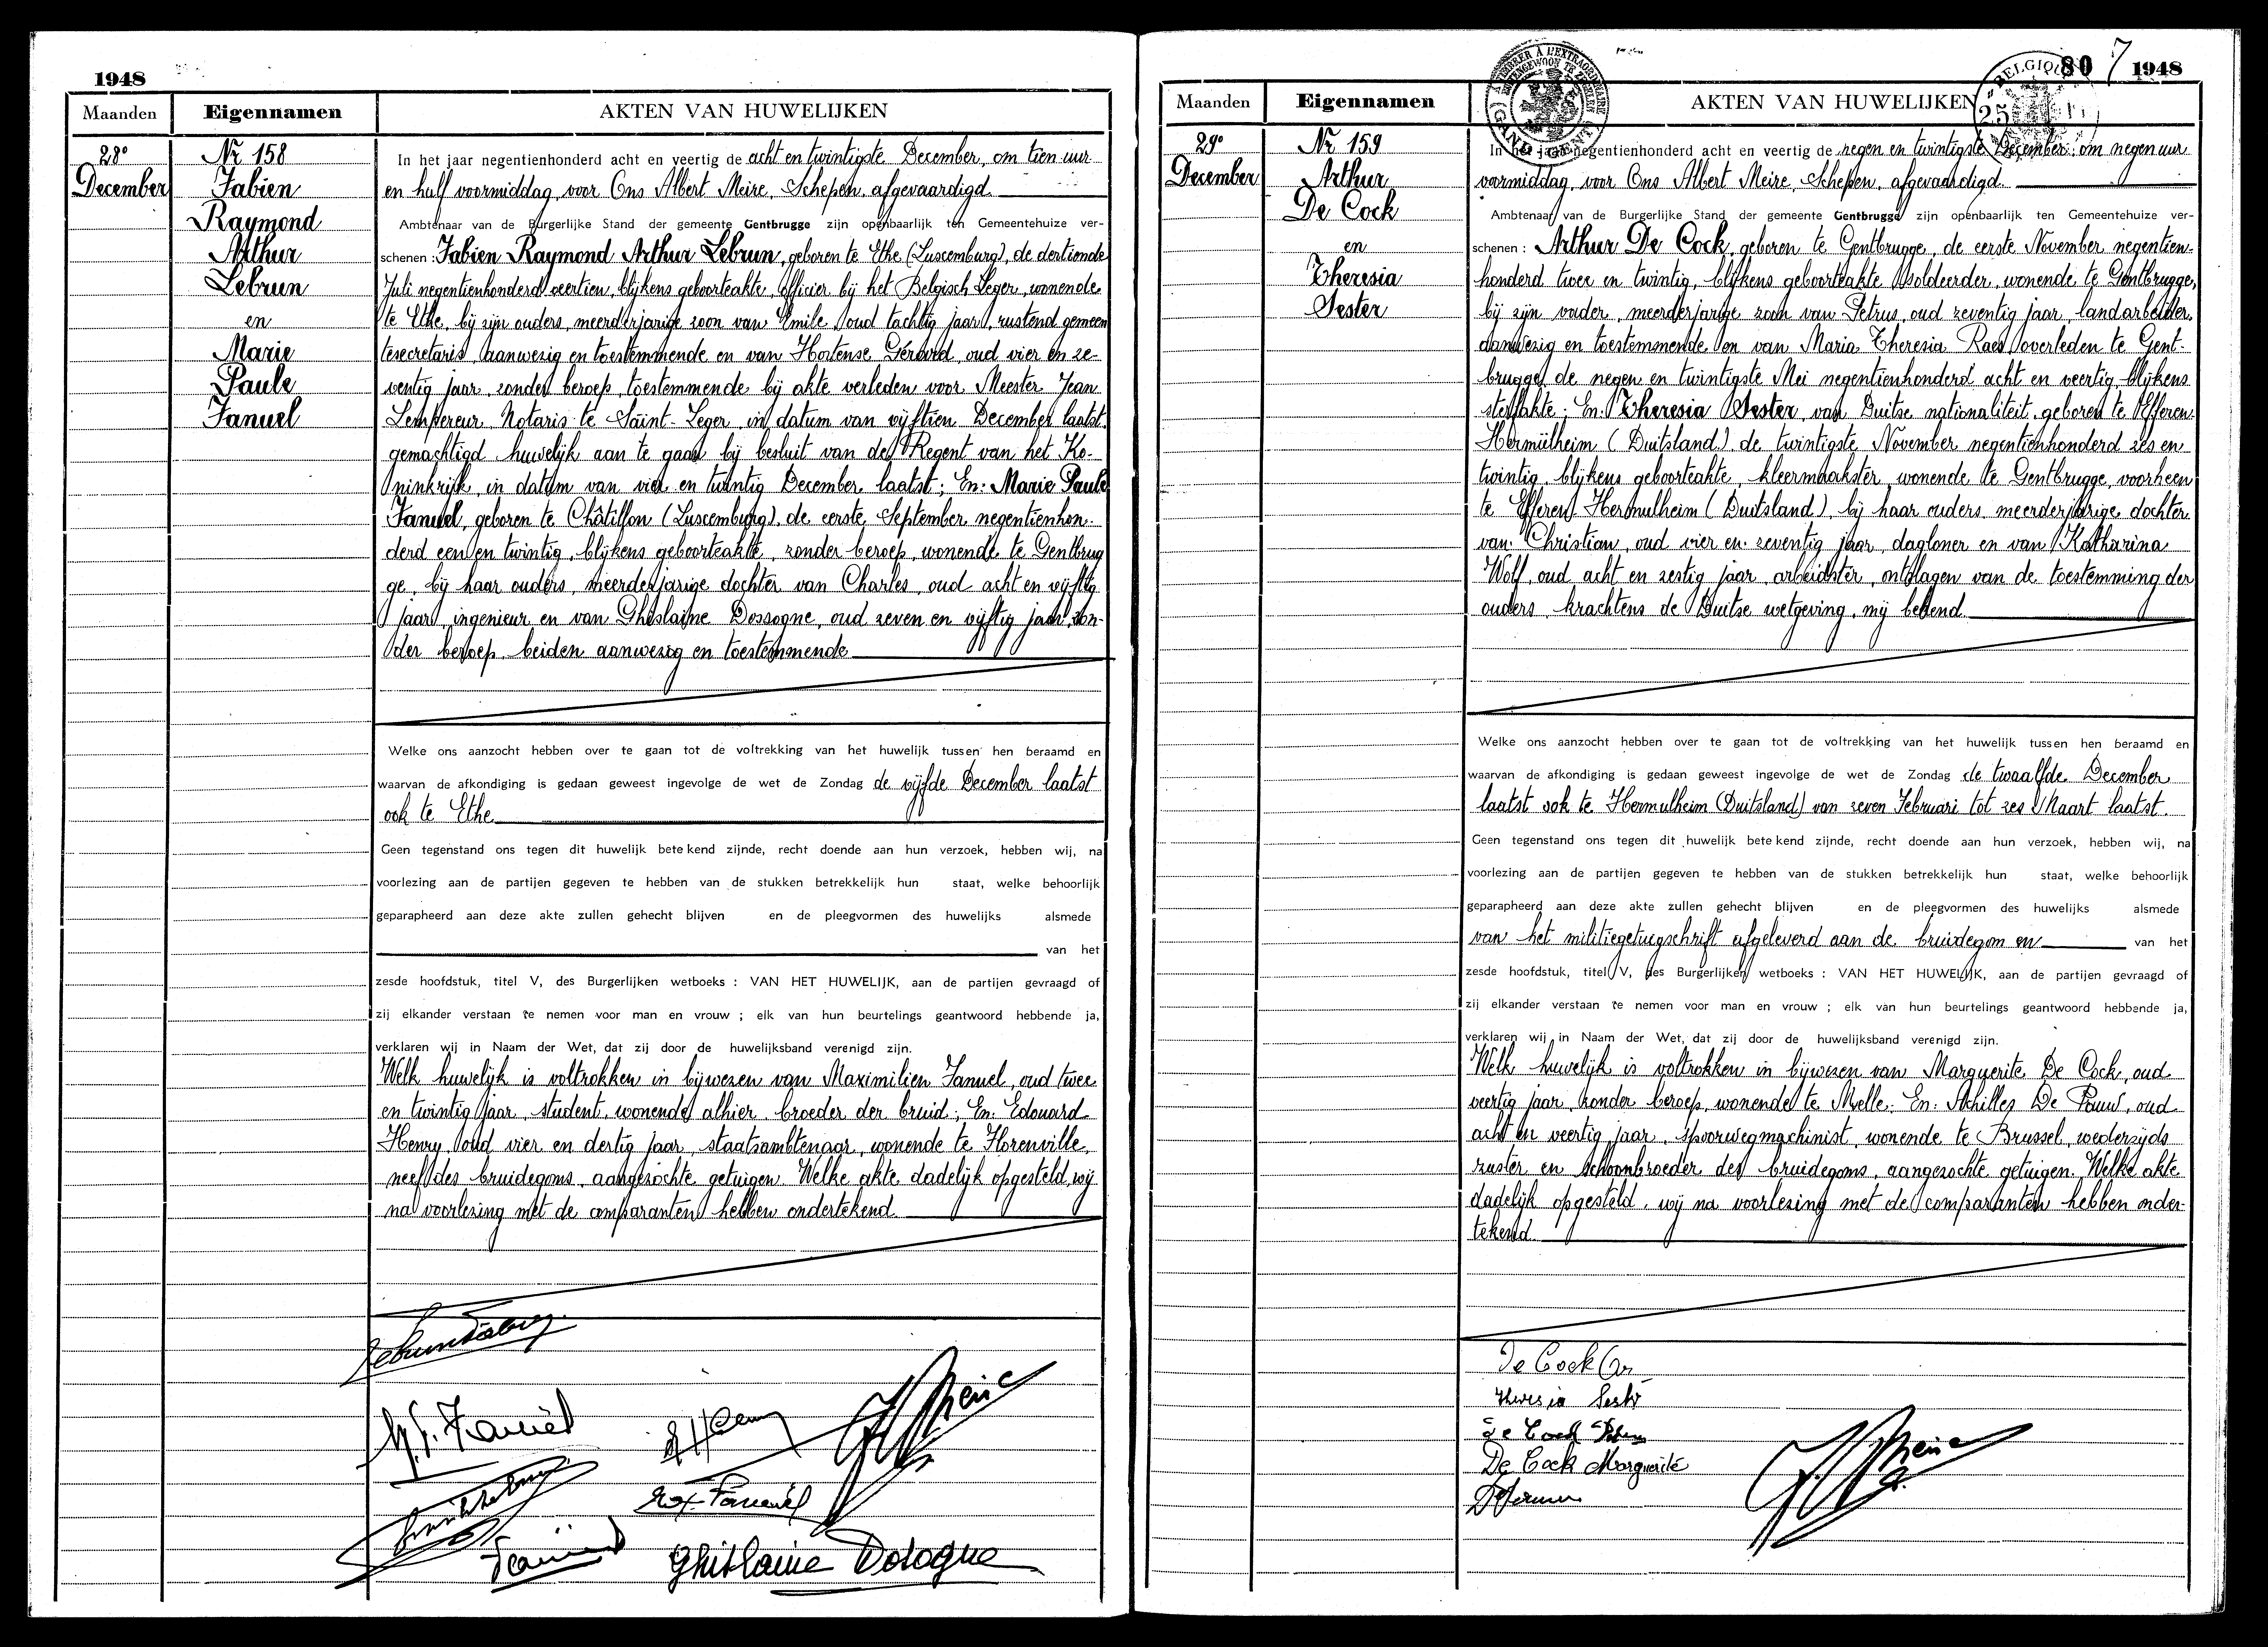 1948
Maanden Eigennamen AKTEN VAN HUWELIJKEN
28e
December
Nr 158
Fabien
Raymond
Arthur
Lebrun
en
Marie
Paule
Fanuel
In het jaar negentienhonderd acht en veertig de acht en twintigste December, om tien uur
en half voormiddag, voor Ons Albert Meire, Schepen, afgevaardigd
Ambtenaar van de Burgerlijke Stand der gemeente Gentbrugge zijn openbaarlijk ten Gemeentehuize ver-
schenen : Fabien Raymond Arthur Lebrun, geboren te Ethe (Luxemburg), de dertiende
Juli negentienhonderd veertien, blijkens geboorteakte, officier bij het Belgisch Leger, wonende
te Ethe, bij zijn ouders, meerderjarige zoon van Emile, oud tachtig jaar, rustend gemeen
tesecretaris, aanwezig en toestemmende en van Hortense Gérard, oud vier en ze-
ventig jaar, zonder beroep, toestemmende bij akte verleden voor Meester Jean
Lempereur, Notaris te Saint-Leger, in datum van vijftien December laatst,
gemachtigd huwelijk aan te gaan bij besluit van de Regent van het Ko-
ninkrijk, in datum van vier en twintig December laatst; En: Marie Paule
Fanuel, geboren te Châtillon (Luxemburg), de eerste September negentienhon-
derd een en twintig, blijkens geboorteakte, zonder beroep, wonende te Gentbrug
ge, bij haar ouders, meerderjarige dochter van Charles, oud acht en vijftig
jaar, ingenieur en van Ghislaine Dossogne, oud zeven en vijftig jaar, zon-
der beroep, beiden aanwezig en toestemmende
Welke ons aanzocht hebben over te gaan tot de voltrekking van het huwelijk tussen hen beraamd en
waarvan de afkondiging is gedaan geweest ingevolge de wet de Zondag de vijfde December laatst
ook te Ethe
Geen tegenstand ons tegen dit huwelijk betekend zijnde, recht doende aan hun verzoek, hebben wij, na
voorlezing aan de partijen gegeven te hebben van de stukken betrekkelijk hun staat, welke behoorlijk
geparapheerd aan deze akte zullen gehecht blijven en de pleegvormen des huwelijks alsmede
van het
zesde hoofdstuk, titel V, des Burgerlijken wetboeks : VAN HET HUWELIJK, aan de partijen gevraagd of
zij elkander verstaan te nemen voor man en vrouw ; elk van hun beurtelings geantwoord hebbende ja,
verklaren wij in Naam der Wet, dat zij door de huwelijksband verenigd zijn.
Welk huwelijk is voltrokken in bijwezen van Maximilien Fanuel, oud twee
en twintig jaar, student, wonende alhier, broeder der bruid; En: Edouard
Henry, oud vier en dertig jaar, staatsambtenaar, wonende te Florenville,
neef des bruidegoms, aangezochte getuigen. Welke akte dadelijk opgesteld, wij
na voorlezing met de comparanten hebben ondertekend.
M.P. Fanuel
Ghislaine Dosogne
80 7 1948
Maanden Eigennamen AKTEN VAN HUWELIJKEN
29e
December
Nr 159
Arthur
De Cock
en
Theresia
Sester
In het jaar negentienhonderd acht en veertig de negen en twintigste December, om negen uur
voormiddag, voor Ons Albert Meire, Schepen, afgevaardigd.
Ambtenaar van de Burgerlijke Stand der gemeente Gentbrugge zijn openbaarlijk ten Gemeentehuize ver-
schenen : Arthur De Cock, geboren te Gentbrugge, de eerste November negentien-
honderd twee en twintig, blijkens geboorteakte, soldeerder, wonende te Gentbrugge,
bij zijn vader, meerderjarige zoon van Petrus, oud zeventig jaar, landarbeider,
aanwezig en toestemmende en van Maria Theresia Raes, overleden te Gent-
brugge, de negen en twintigste Mei negentienhonderd acht en veertig, blijkens
sterfakte; En: Theresia Sester, van Duitse nationaliteit, geboren te Efferen-
Hermülheim (Duitsland), de twintigste November negentienhonderd zes en
twintig, blijkens geboorteakte, kleermaakster, wonende te Gentbrugge, voorheen
te Efferen Hermulheim (Duitsland), bij haar ouders, meerderjarige dochter
van Christian, oud vier en zeventig jaar, dagloner en van Katharina
Wolf, oud acht en zestig jaar, arbeidster, ontslagen van de toestemming der
ouders, krachtens de Duitse wetgeving, mij bekend
Welke ons aanzocht hebben over te gaan tot de voltrekking van het huwelijk tussen hen beraamd en
waarvan de afkondiging is gedaan geweest ingevolge de wet de Zondag de twaalfde December
laatst ook te Hermulheim (Duitsland) van zeven Februari tot zes Maart laatst.
Geen tegenstand ons tegen dit huwelijk betekend zijnde, recht doende aan hun verzoek, hebben wij, na
voorlezing aan de partijen gegeven te hebben van de stukken betrekkelijk hun staat, welke behoorlijk
geparapheerd aan deze akte zullen gehecht blijven en de pleegvormen des huwelijks alsmede
van het militiegetuigschrift afgeleverd aan de bruidegom en van het
zesde hoofdstuk, titel V, des Burgerlijken wetboeks : VAN HET HUWELIJK, aan de partijen gevraagd of
zij elkander verstaan te nemen voor man en vrouw ; elk van hun beurtelings geantwoord hebbende ja,
verklaren wij in Naam der Wet, dat zij door de huwelijksband verenigd zijn.
Welk huwelijk is voltrokken in bijwezen van Marguerite De Cock, oud
veertig jaar, zonder beroep, wonende te Melle; En: Achilles De Pauw, oud
acht en veertig jaar, spoorwegmachinist, wonende te Brussel, wederzijds
zuster en schoonbroeder des bruidegoms, aangezochte getuigen. Welke akte
dadelijk opgesteld, wij na voorlezing met de comparanten hebben onder-
tekend.
De Cock Ar
Theresia Sester
De Cock
De Cock Marguerite